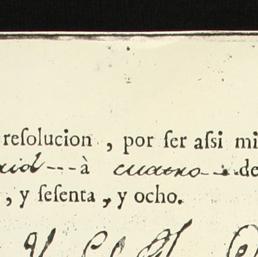 resolucion , por ser assi mi
rid --- à cuatro -- de
, y sesenta , y ocho.